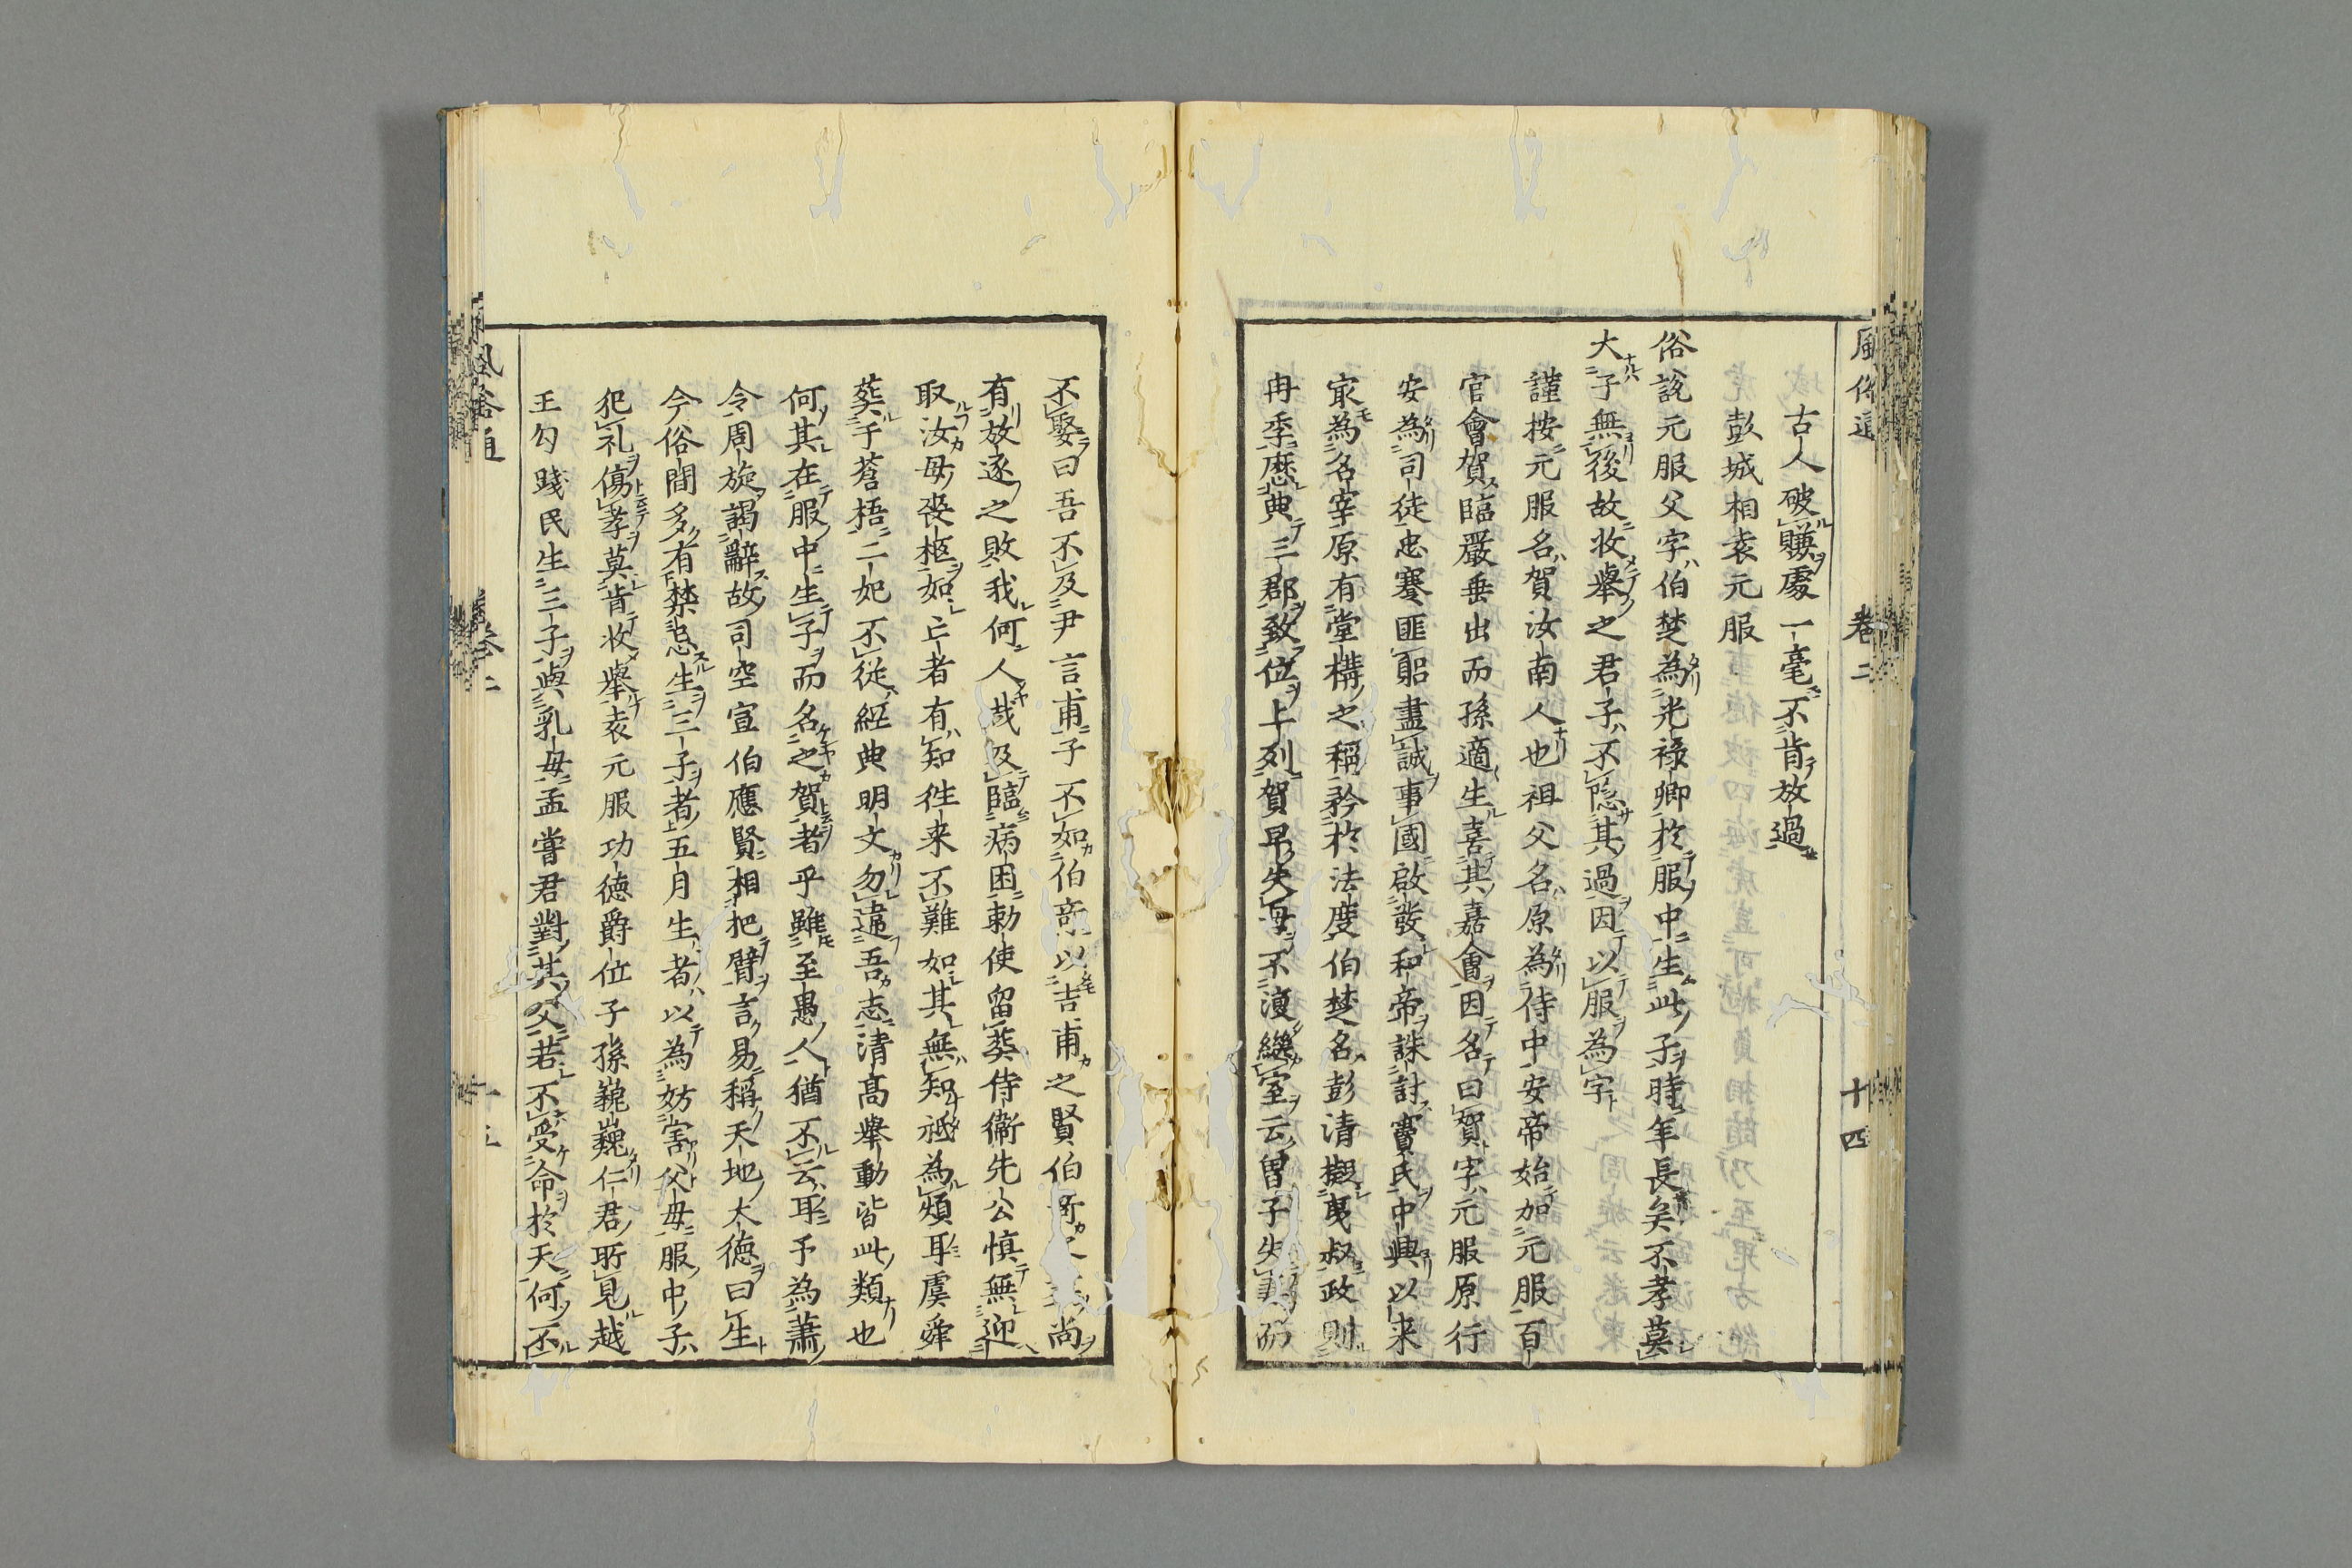 風俗通 卷二 十四
古人破賺處一毫不肯放過
彭城相袁元服
俗說元服父字伯楚為光祿卿於服中生此子時年長矣不孝莫
大子無後故收舉之君子不隱其過因以服為字
謹按元服名賀汝南人也祖父名原為侍中安帝始加元服百
官會賀臨嚴垂出而孫適生喜其嘉會因名曰賀字元服原行
安為司徒忠蹇匪躬盡誠事國啟發和帝誅討竇氏中興以来
㝡為名宰原有堂構之稱矜於法度伯楚名彭清擬夷叔政則
冉季歷典三郡致位上列賀早失母不復繼室云曽子失妻而
不娶曰吾不及尹吉甫子不如伯竒以吉甫之賢伯竒之孝尚
有放逐之敗我何人哉及臨病困勅使留葬侍衞先公慎無迎
取汝母喪柩如亡者有知徃来不難如其無知祇為煩耳虞舜
葬于蒼梧二妃不從經典明文勿違吾志清高舉動皆此類也
何其在服中生子而名之賀者乎雖至愚人猶不云耳予為蕭
令周旋謁辭故司空宣伯應賢相把臂言易稱天地大德曰生
今俗間多有禁忌生三子者五月生者以為妨害父母服中子
犯礼傷孝莫肯收舉袁元服功德爵位子孫巍巍仁君所見越
王勾踐民生三子與乳母孟嘗君對其父若不受命於天何不
風俗通 卷二